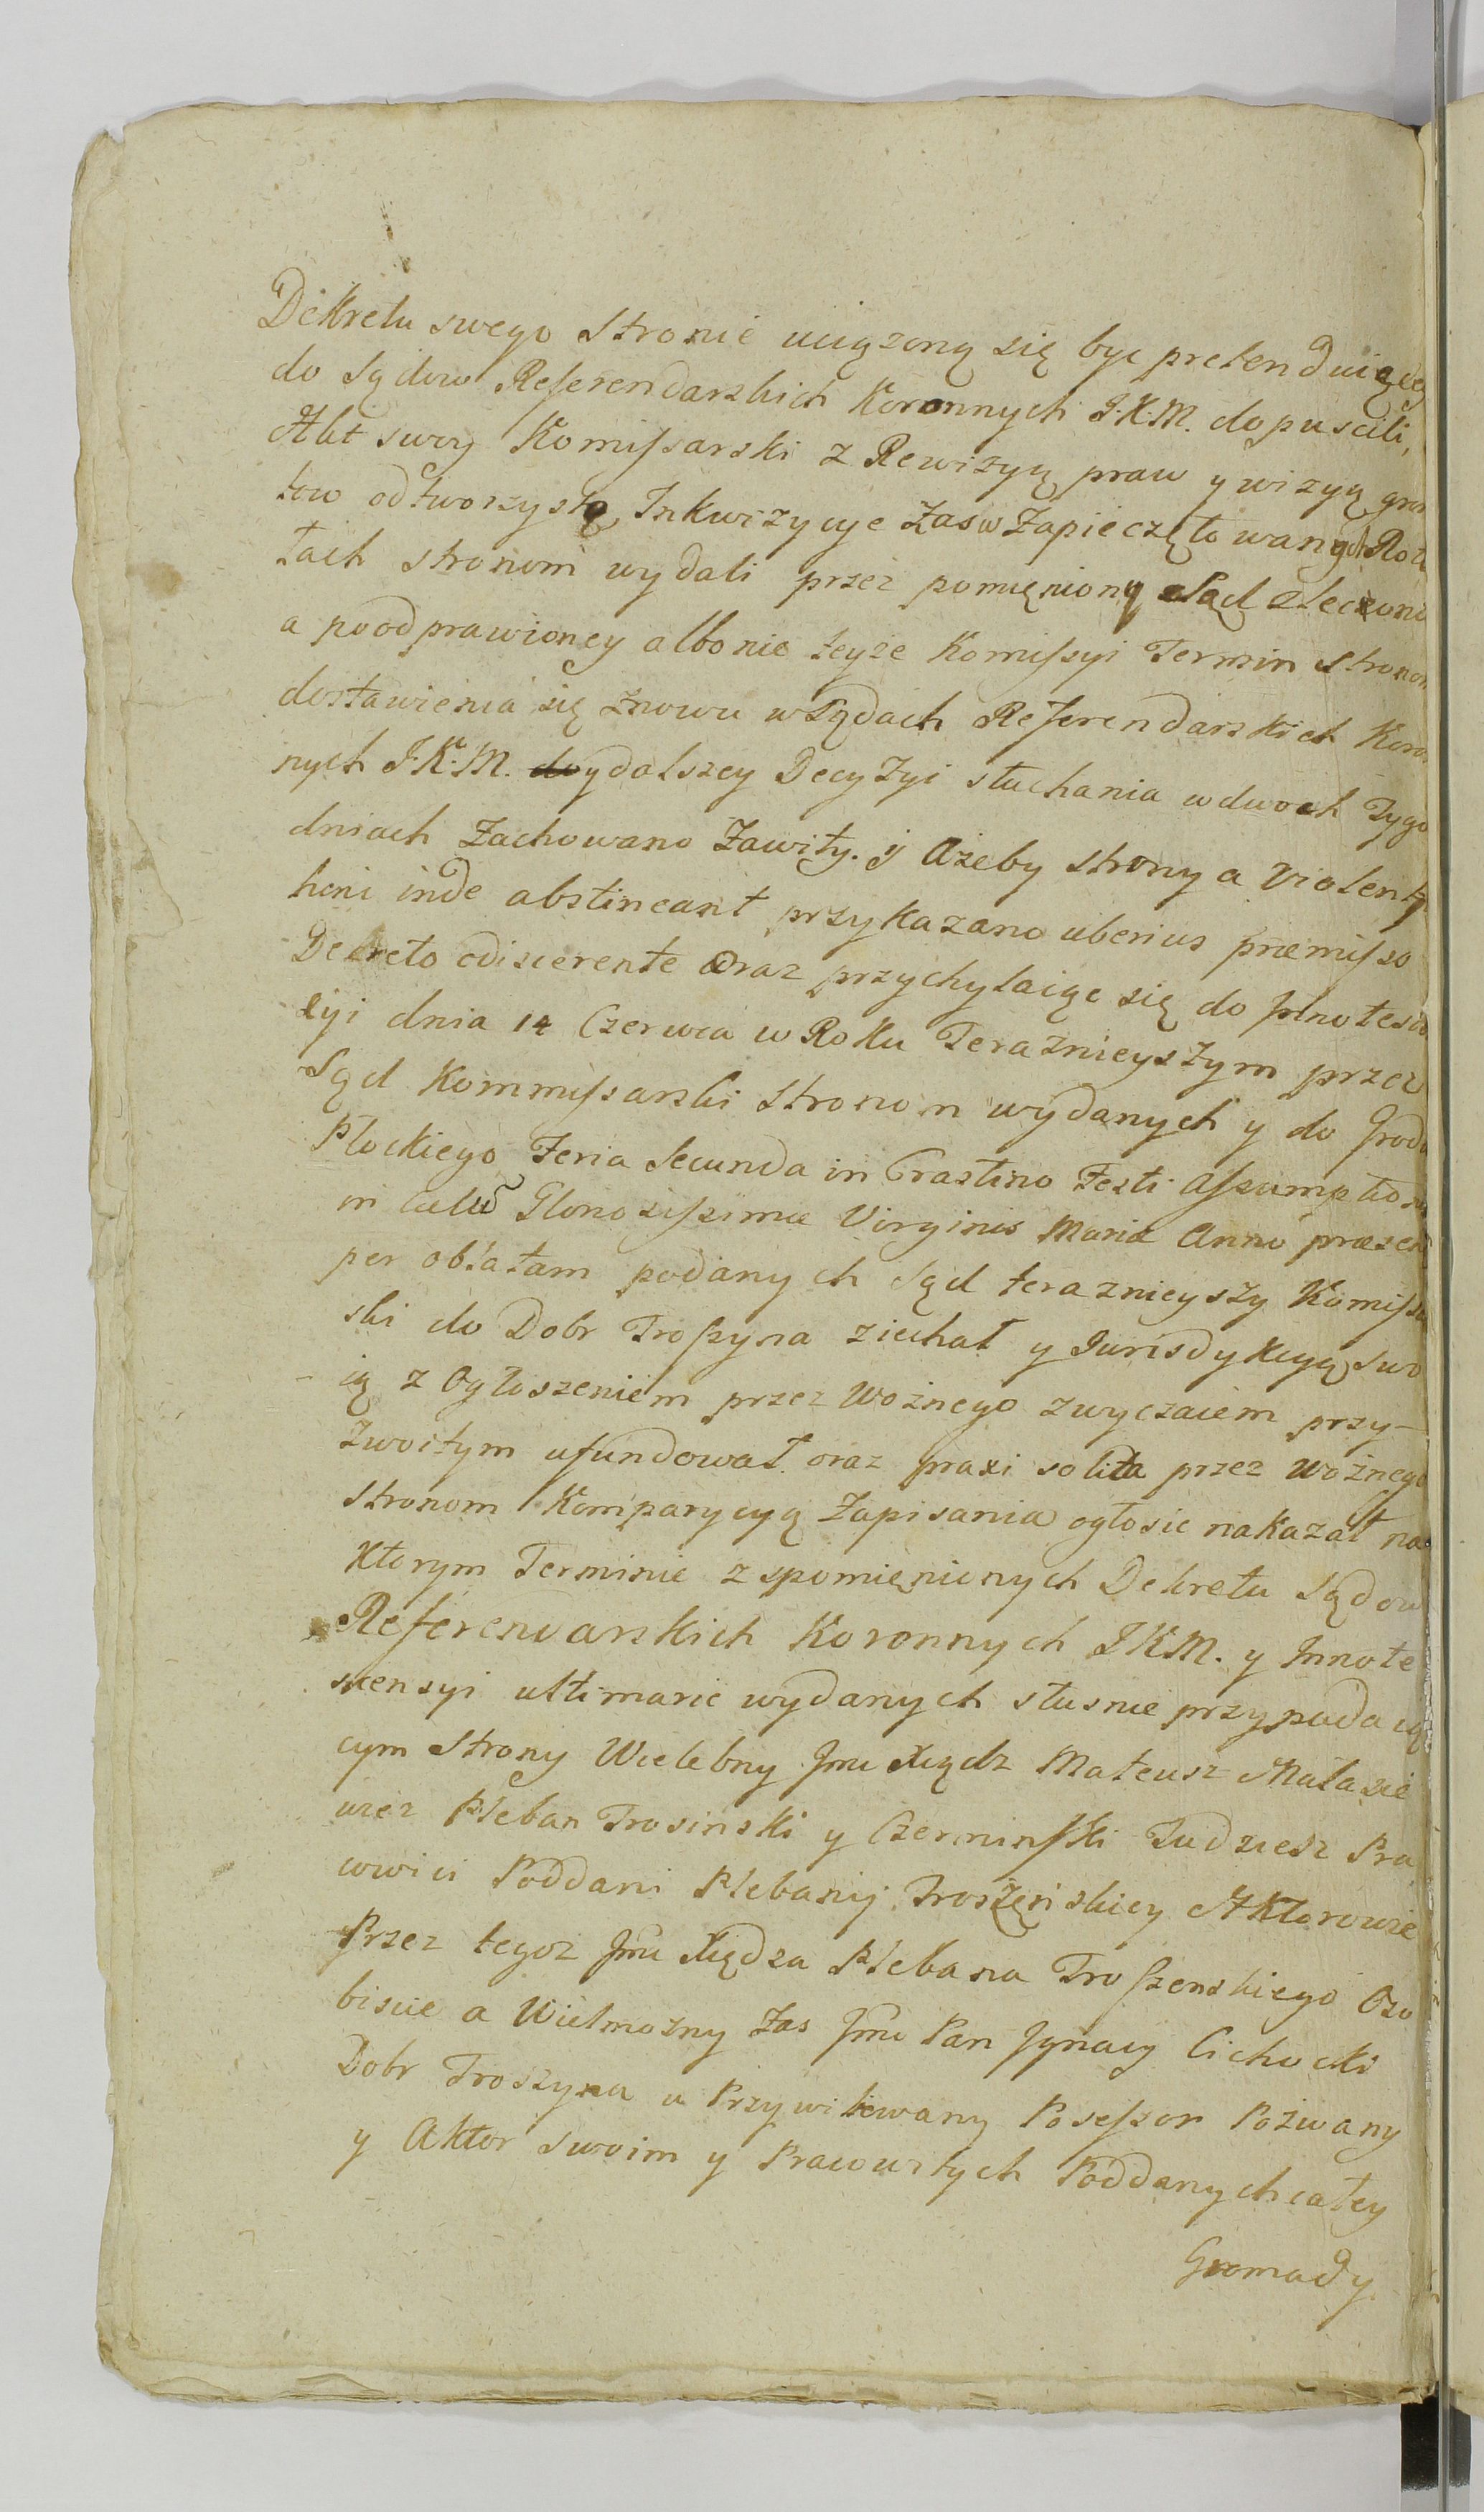 Dekretu swego Stronie uciązoną się byc pretenduiącey
do Sądow Referendarskich Koronnych J.K.M. dopuscili,
Akt swoy Komissarski z Rewizyą praw y wizyą grun
tow odtworzystą, Inkwizycye Zas w Zapieczętowanych Rotu
łach stronom wydali przez pomięniony Sąd zlecono
a poodprawioney albo nie teyze Komissyi Termin stronom
dostawienia się znowu w Sądach Referendarskich Koro
nych J.K.M. y dalszey Decyzyi słuchania w dwoch Tygo
dniach Zachowano Zawity. y Ażeby strony a Violenty
hinc inde abstineant przykazano uberius præmisso
Decreto ediscerente Oraz przychylaiąc się do Jnnotesce
cyi dnia 14 Czerwca w Roku Teraznieyszym przez
Sąd Kommissarski Stronom wydanych y do Grodu
Płockiego Feria Secunda in Crastino Festi Assumptionis
in Cælũ Gloriosissimæ Virginis Mariæ Anno præsenti
per oblatam podanych Sąd teraznieyszy Komissar
ski do Dobr Trossyna ziechał y Jurisdykcyą swo
ią z Ogłoszeniem przez Woźnego zwyczaiem przy-
zwoitym ufundował oraz praxi solita przez Woźnego
stronom Komparycyą Zapisania ogłosic nakazał na
Ktorym Terminie z spomięnionych Dekretu Sądow
Referendarskich Koronnych J.K.M. y Jnnote
scensyi ultimarie wydanych słusnie przypadaią
cym Strony Wielebny Jmć Xiądz Mateusz Małasie
wicz Pleban Trosinski y Czerminski Tudziesz Pra
cowici Poddani Plebanij Troszęnskiey Aktorowie
Przez tegoz Jmć Xiędza Plebana Troszenskiego Oso
biscie a Wielmożny Zas Jmć Pan Jgnacy Cichocki
Dobr Troszyna u Przywilewany Posessor Pożwany
y Aktor swoim y Pracowitych Poddanych całey
Gromady